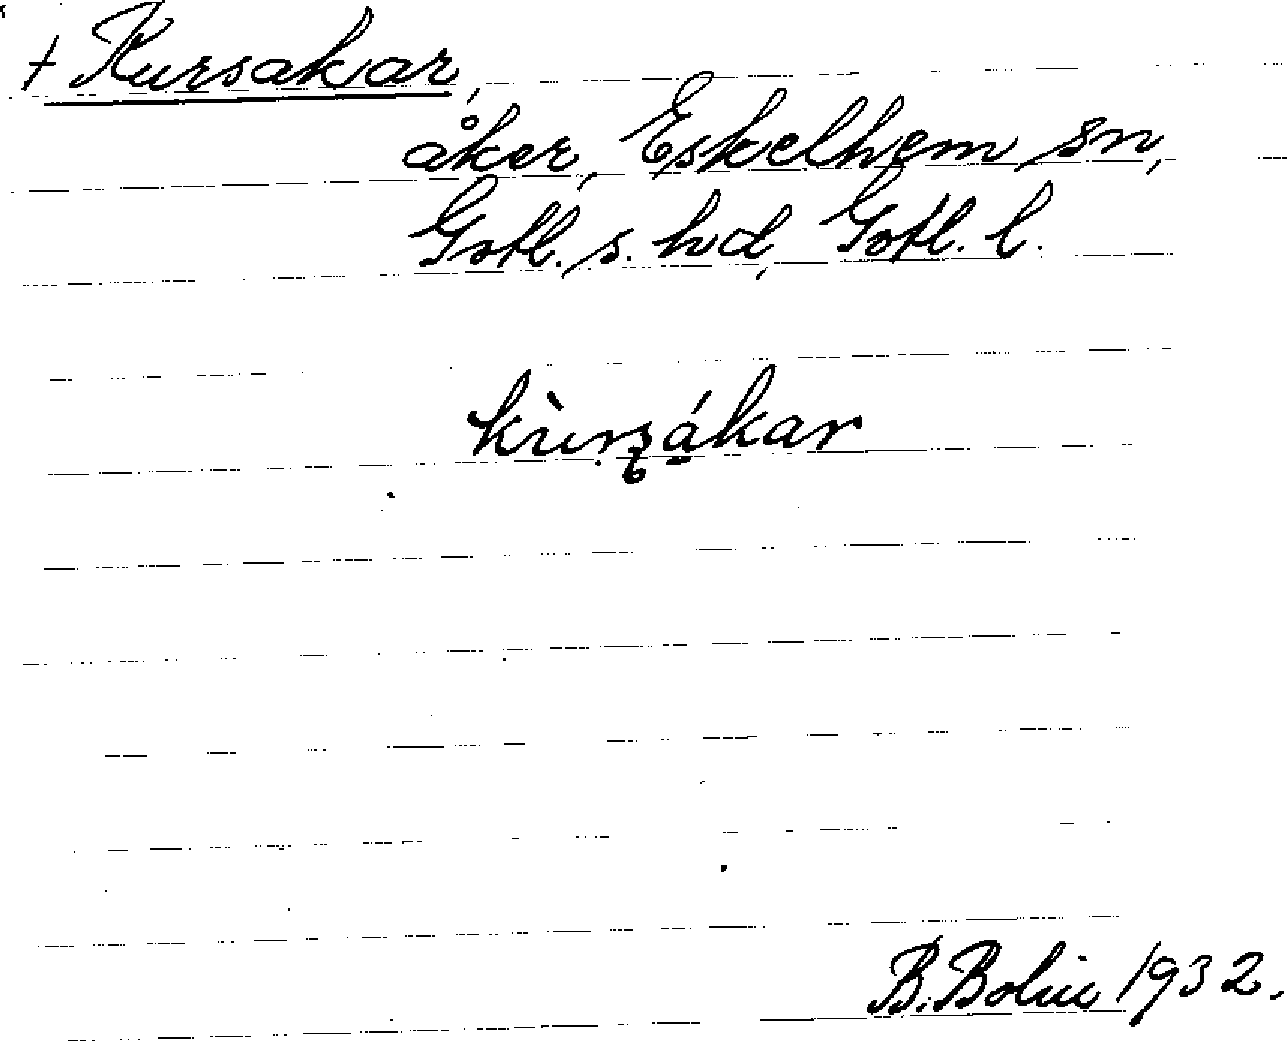 + Kursakar,
åker, Eskelhem sn,
Gotl. s. hd, Gotl. l.
kùrʂá̱kar
B. Bolin 1932.